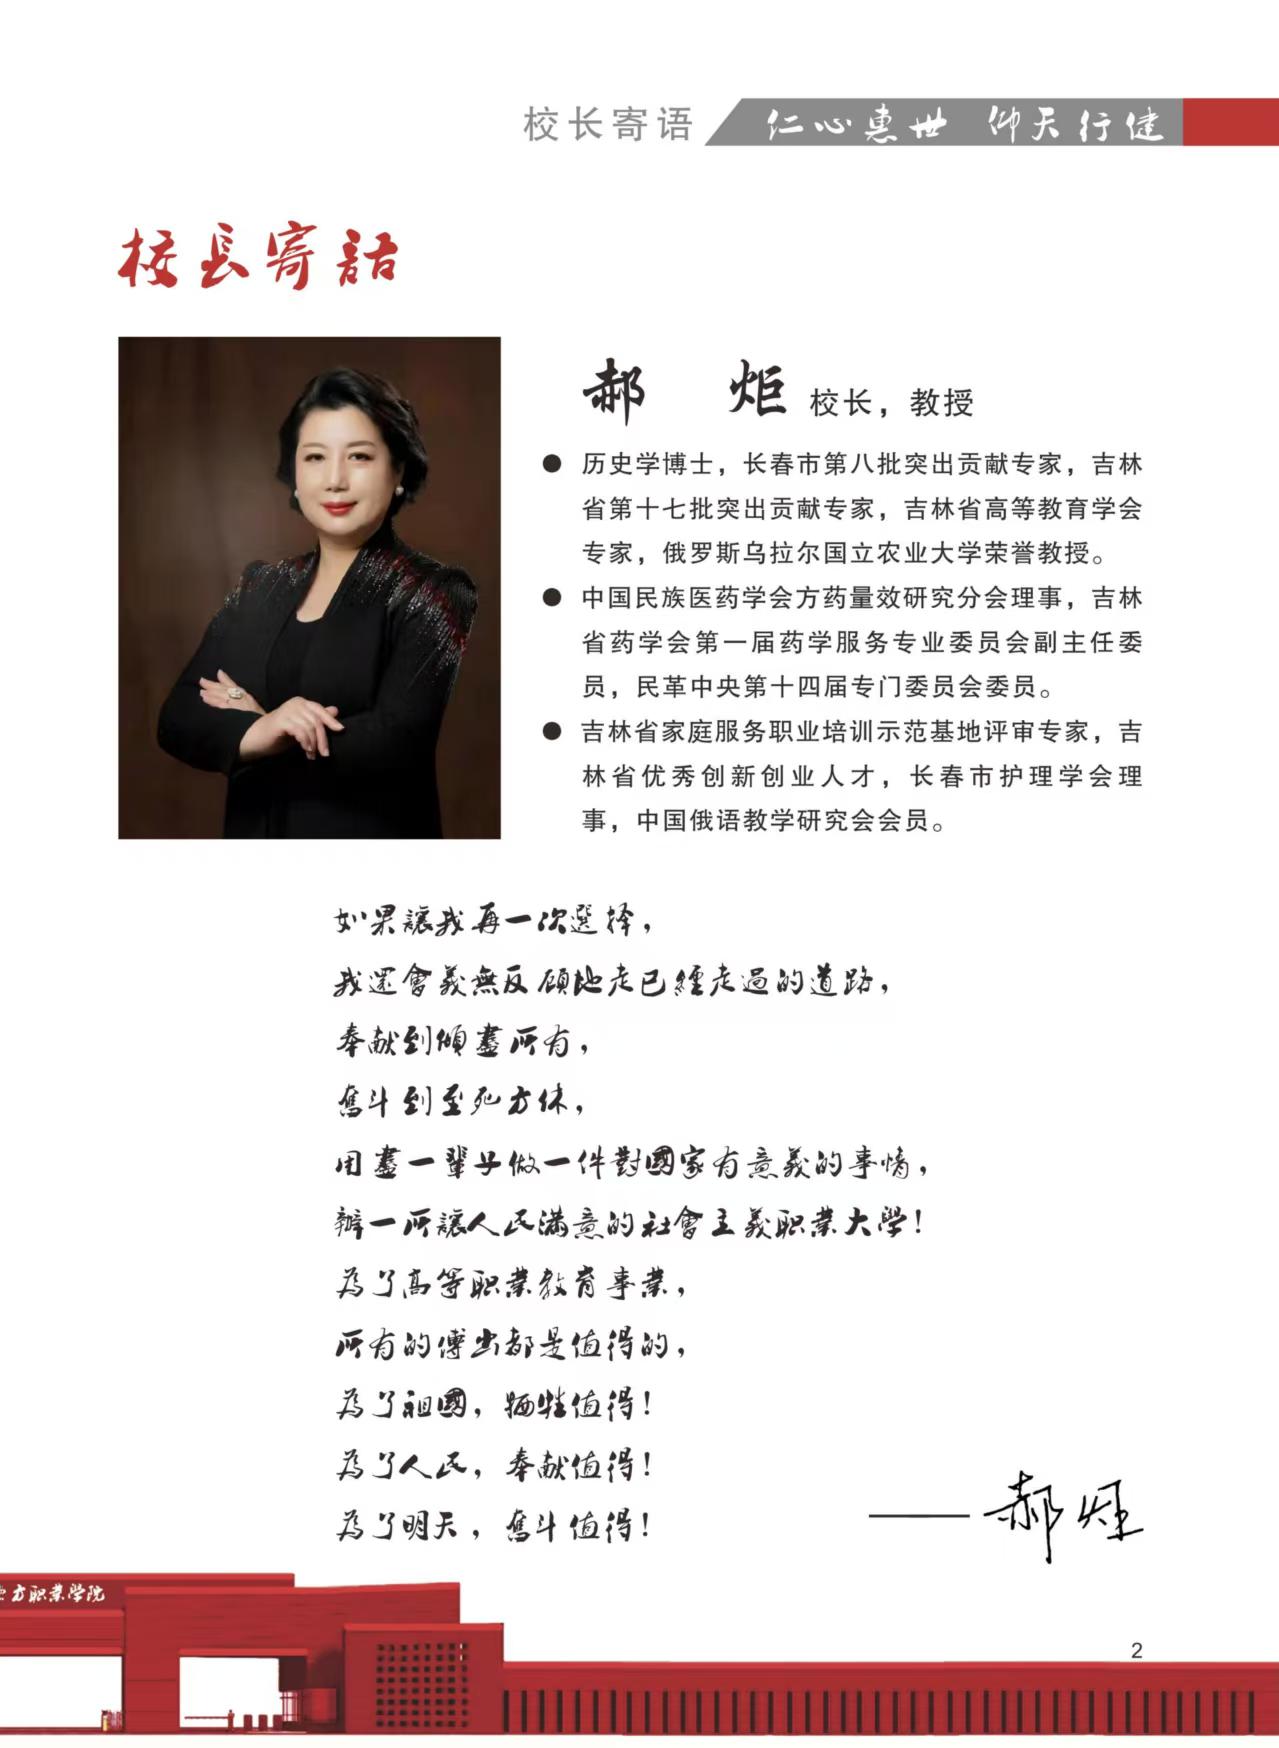 校长寄语
仁心惠世 仰天行健
校長寄語
郝 炬 校长，教授
● 历史学博士，长春市第八批突出贡献专家，吉林
省第十七批突出贡献专家，吉林省高等教育学会
专家，俄罗斯乌拉尔国立农业大学荣誉教授。
● 中国民族医药学会方药量效研究分会理事，吉林
省药学会第一届药学服务专业委员会副主任委
员，民革中央第十四届专门委员会委员。
● 吉林省家庭服务职业培训示范基地评审专家，吉
林省优秀创新创业人才，长春市护理学会理
事，中国俄语教学研究会会员。
如果讓我再一次選择，
我還會義無反顧地走已經走過的道路，
奉献到傾盡所有，
奮斗到至死方休，
用盡一輩子做一件對國家有意義的事情，
辦一所讓人民滿意的社會主義职業大學！
為了高等职業教育事業，
所有的傅出都是值得的，
為了祖國，牺牲值得！
為了人民，奉献值得！
為了明天，奮斗值得！
——郝炬
方职業学院
2